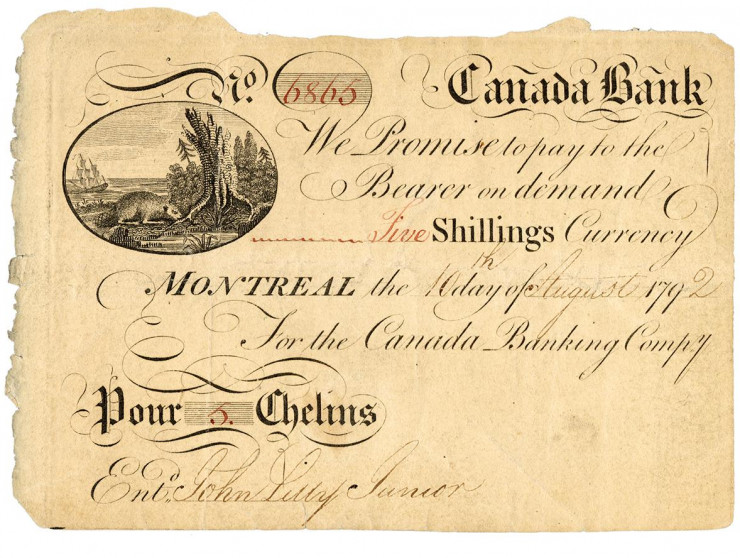 No. 6865 Canada Bank
We Promise to pay to the
Bearer on demand
Five Shillings Currency
MONTREAL the 10th day of August 1792
For the Canada Banking Compy
Pour 5. Chelins
Entd. John Lilly Junior